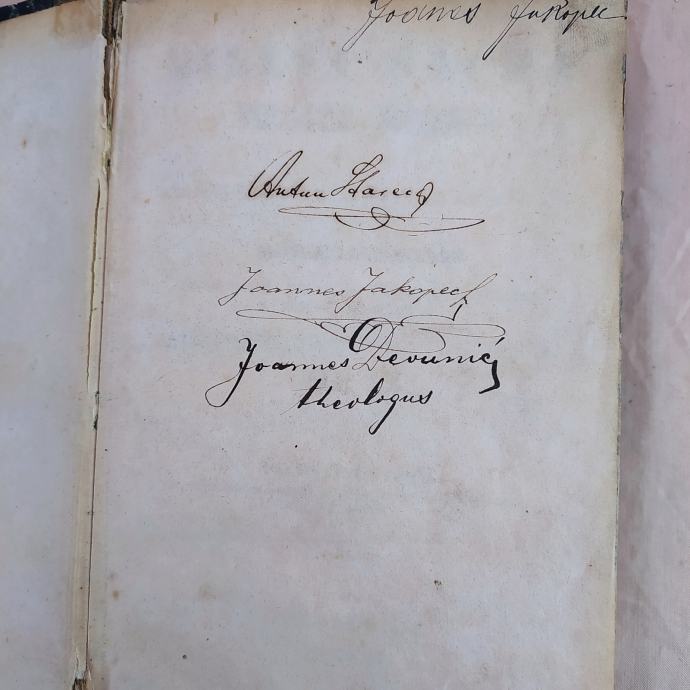 Joannes Jakopec
Antun Starec
Joannes Jakopec
Joannes Devunić
theologus